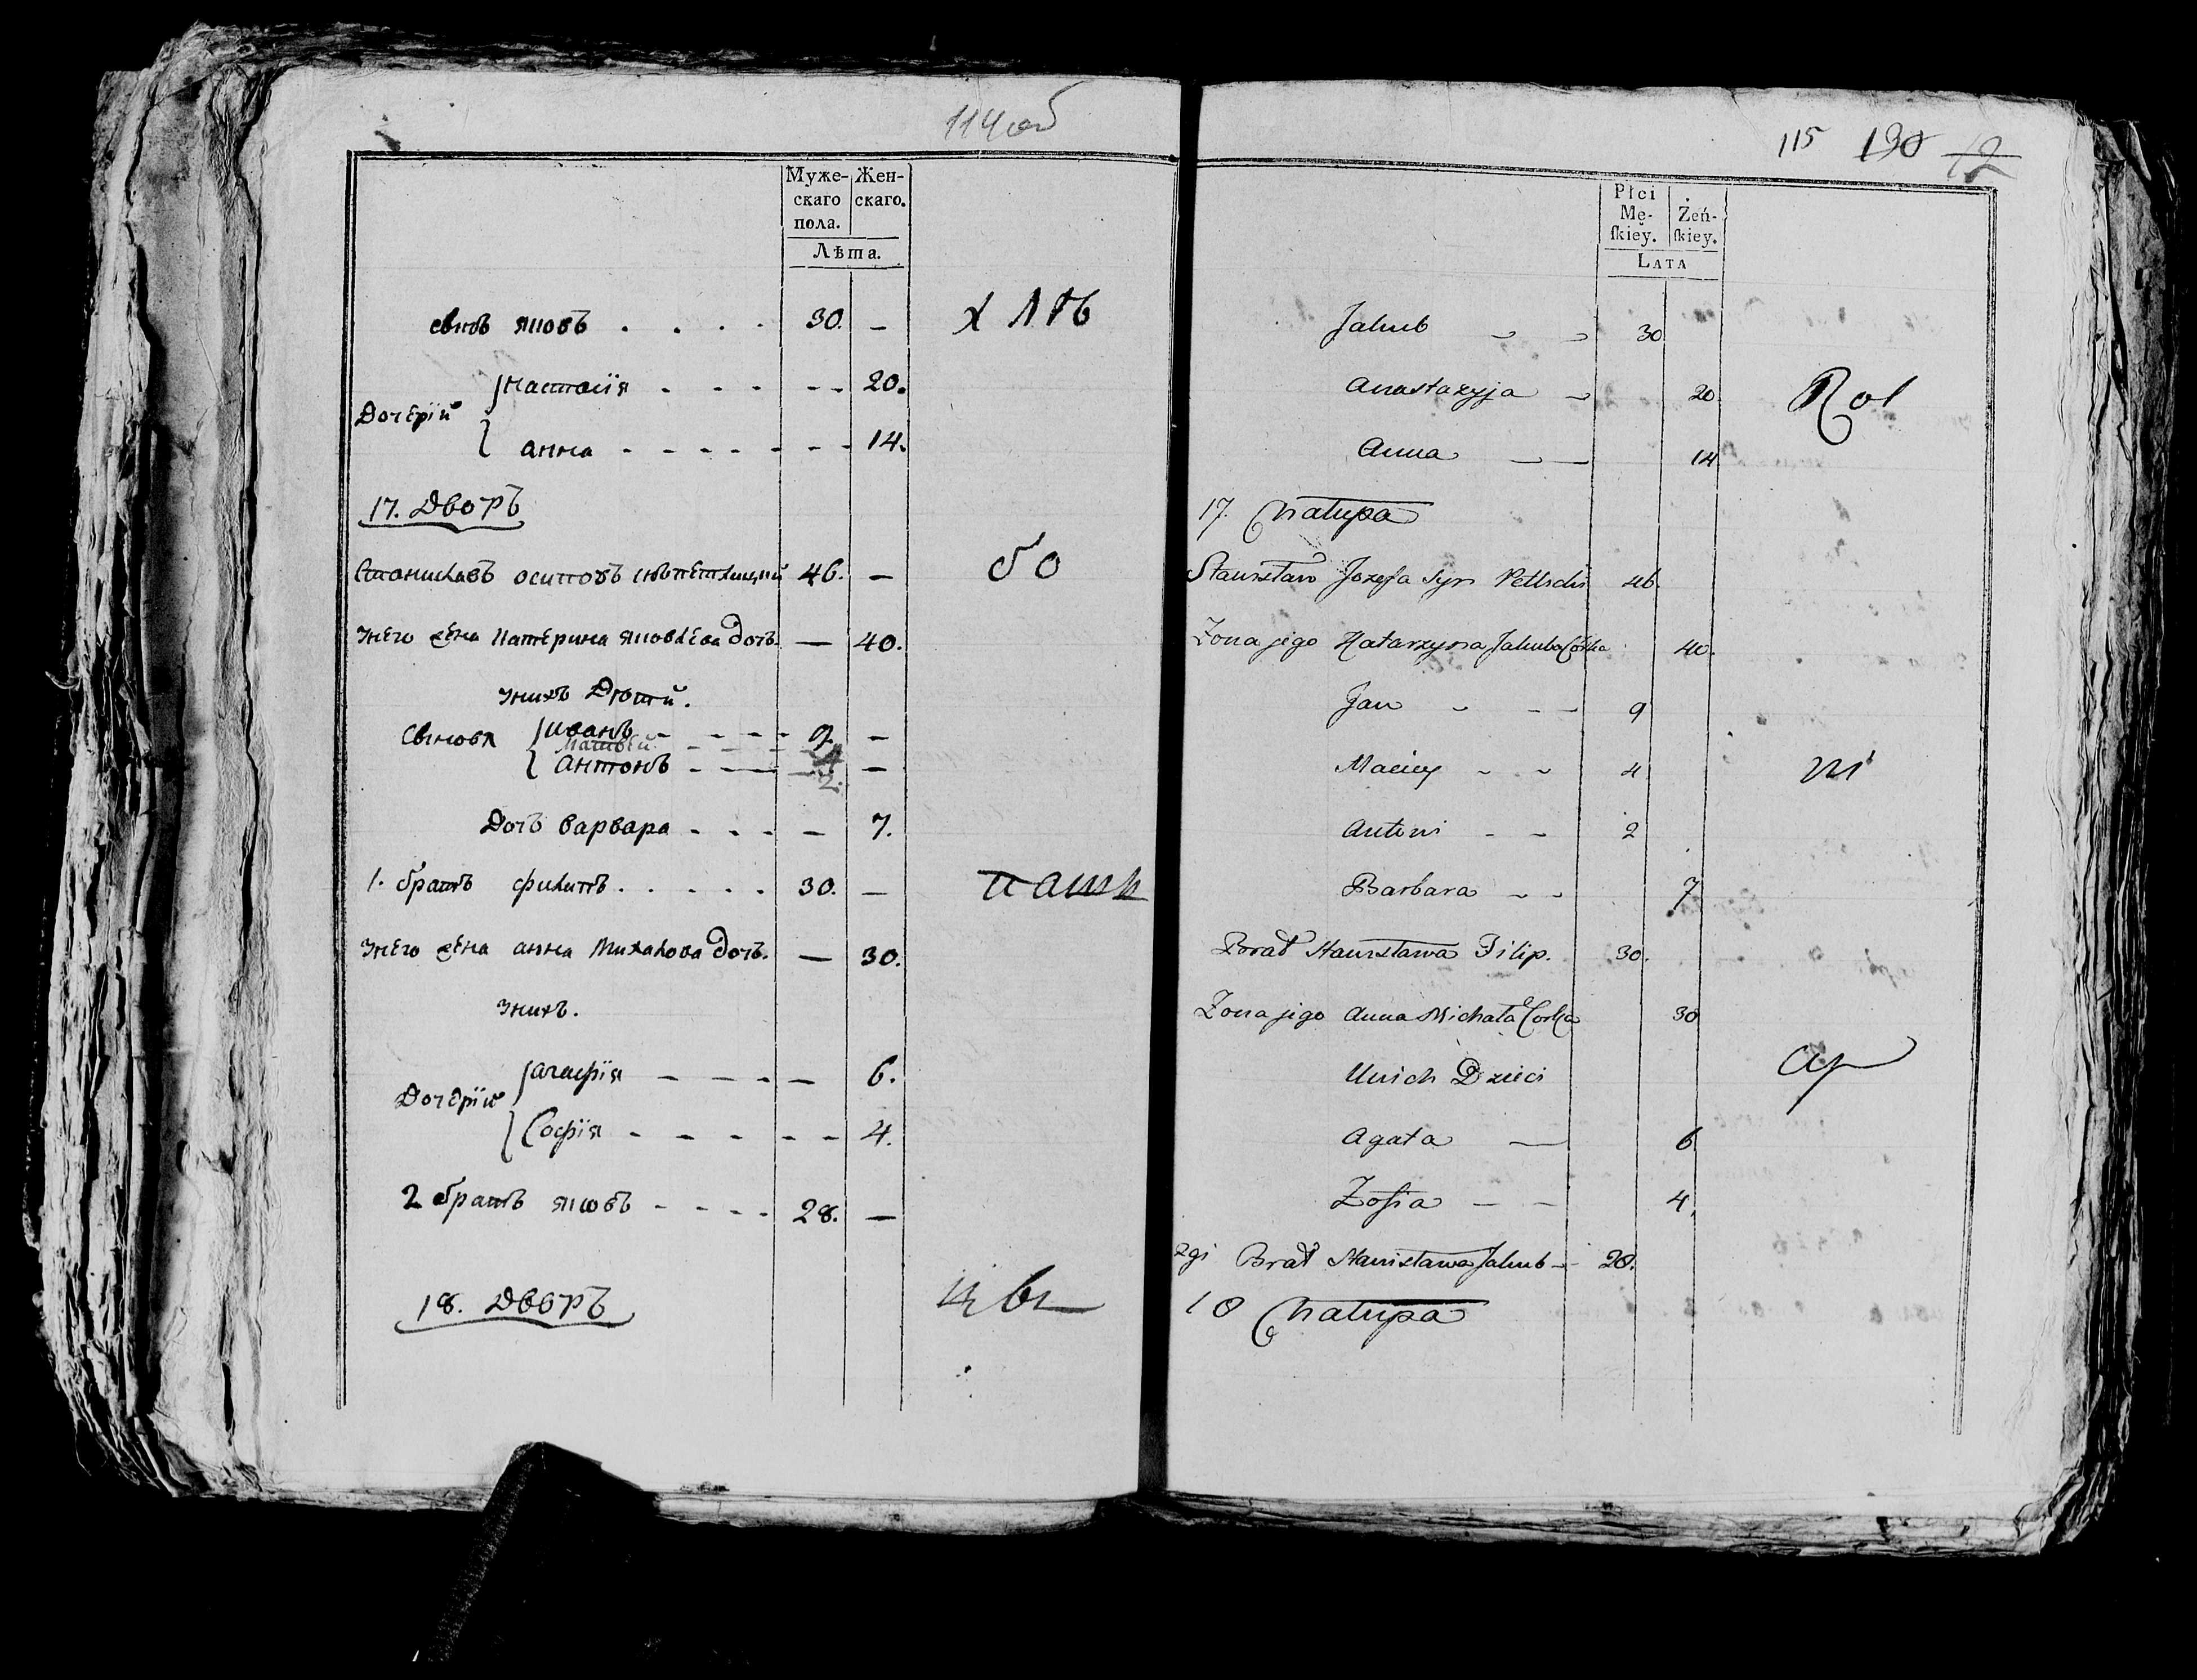 114 об
Муже-
скаго
пола.
Жен-
скаго.
Лѣта.
свнъ яковъ . . . . 30. — хлѣб
настасія - - - - - 20.
Дочерїй
анна - - - - - - - 14.
17. Дворъ
Станиславъ осиповъ снъ петлицкий 46. — бо
Унего жена катерина яковлева Дочь. — 40.
Унихъ Дѣтй.
иванъ - - - - 9. —
Свіновя
матвѣй - - - 4
антонъ - - - 2. —
Дочь варвара - - - — 7.
1. братъ филипъ . . . . . 30. — паш
Унего жена анна михалова Дочь. — 30.
Унихъ.
агафія — — - — 6.
Дочерїй
Софія - - - - - - 4.
2 братъ яковъ - - - - 28. —
18. Дворъ
115 190 12
Płci
Mę-
skiey.
Żeń-
skiey.
Lata
Jakub 30
Anastazyja 20 Rol
Anna 14
17. Chałupa
Stanisław Jozefa Syn Petlicki 46.
Zona jego Katarzyna Jakuba Córka 40.
Jan 9
Maciey 4 ni
Antoni 2
Barbara 7
Brat Stanisława Filip. 30.
Zona jego Anna Michała Corka 30
Unich Dzieci
Agata 6
Zofia 4.
2gi Brat Stanisława Jakub 28.
18 Chałupa